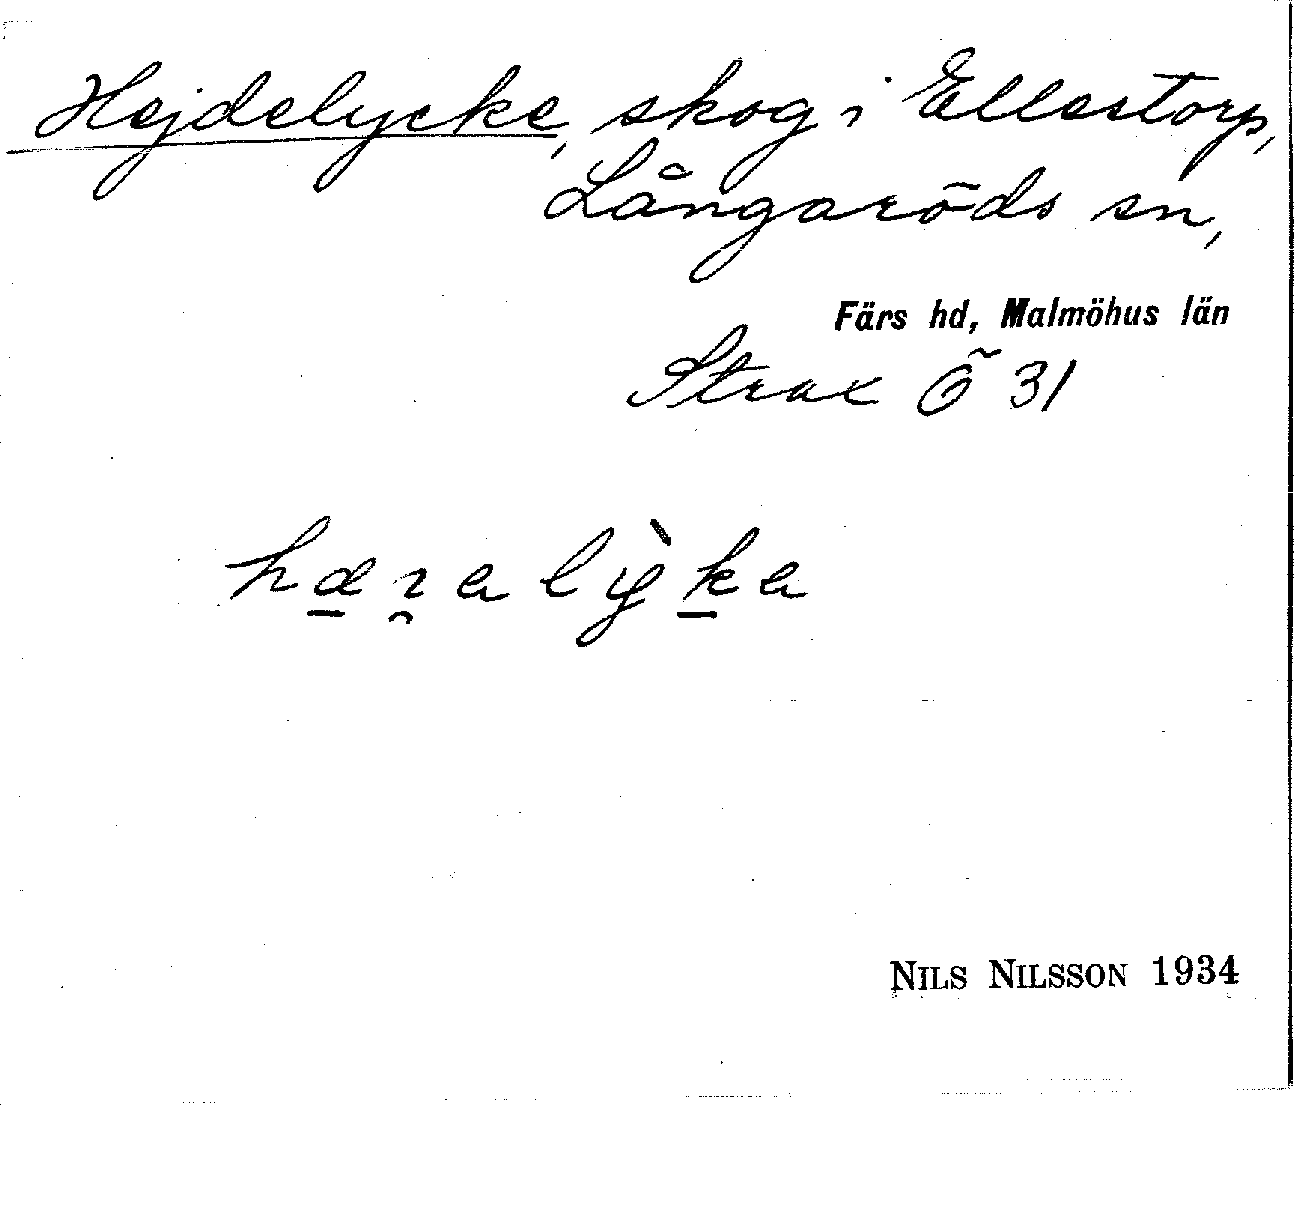 Hejdelycke, skog i Ellestorp,
Långaröds sn,
Färs hd, Malmöhus län
Strax Ö 31
NILS NILSSON 1934